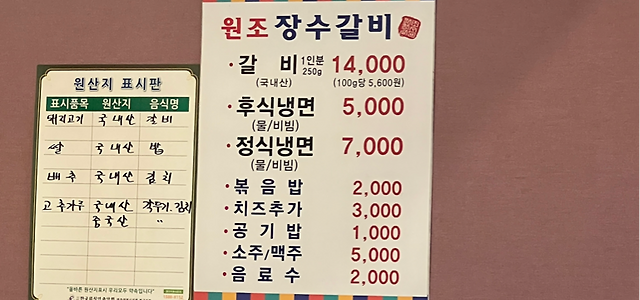 원산지 표시판
표시품목 원산지 음식명
돼지고기 국내산 갈비
쌀 국내산 밥
배추 국내산 김치
고추가루 국내산 깍두기.김치
중국산 〃
"올바른 원산지표시 우리모두 약속입니다"
원조 장수갈비
· 갈 비 1인분 250g 14,000
(국내산) (100g당 5,600원)
· 후식냉면 5,000
(물/비빔)
· 정식냉면 7,000
(물/비빔)
· 볶음밥 2,000
· 치즈추가 3,000
· 공기밥 1,000
· 소주/맥주 5,000
· 음료수 2,000